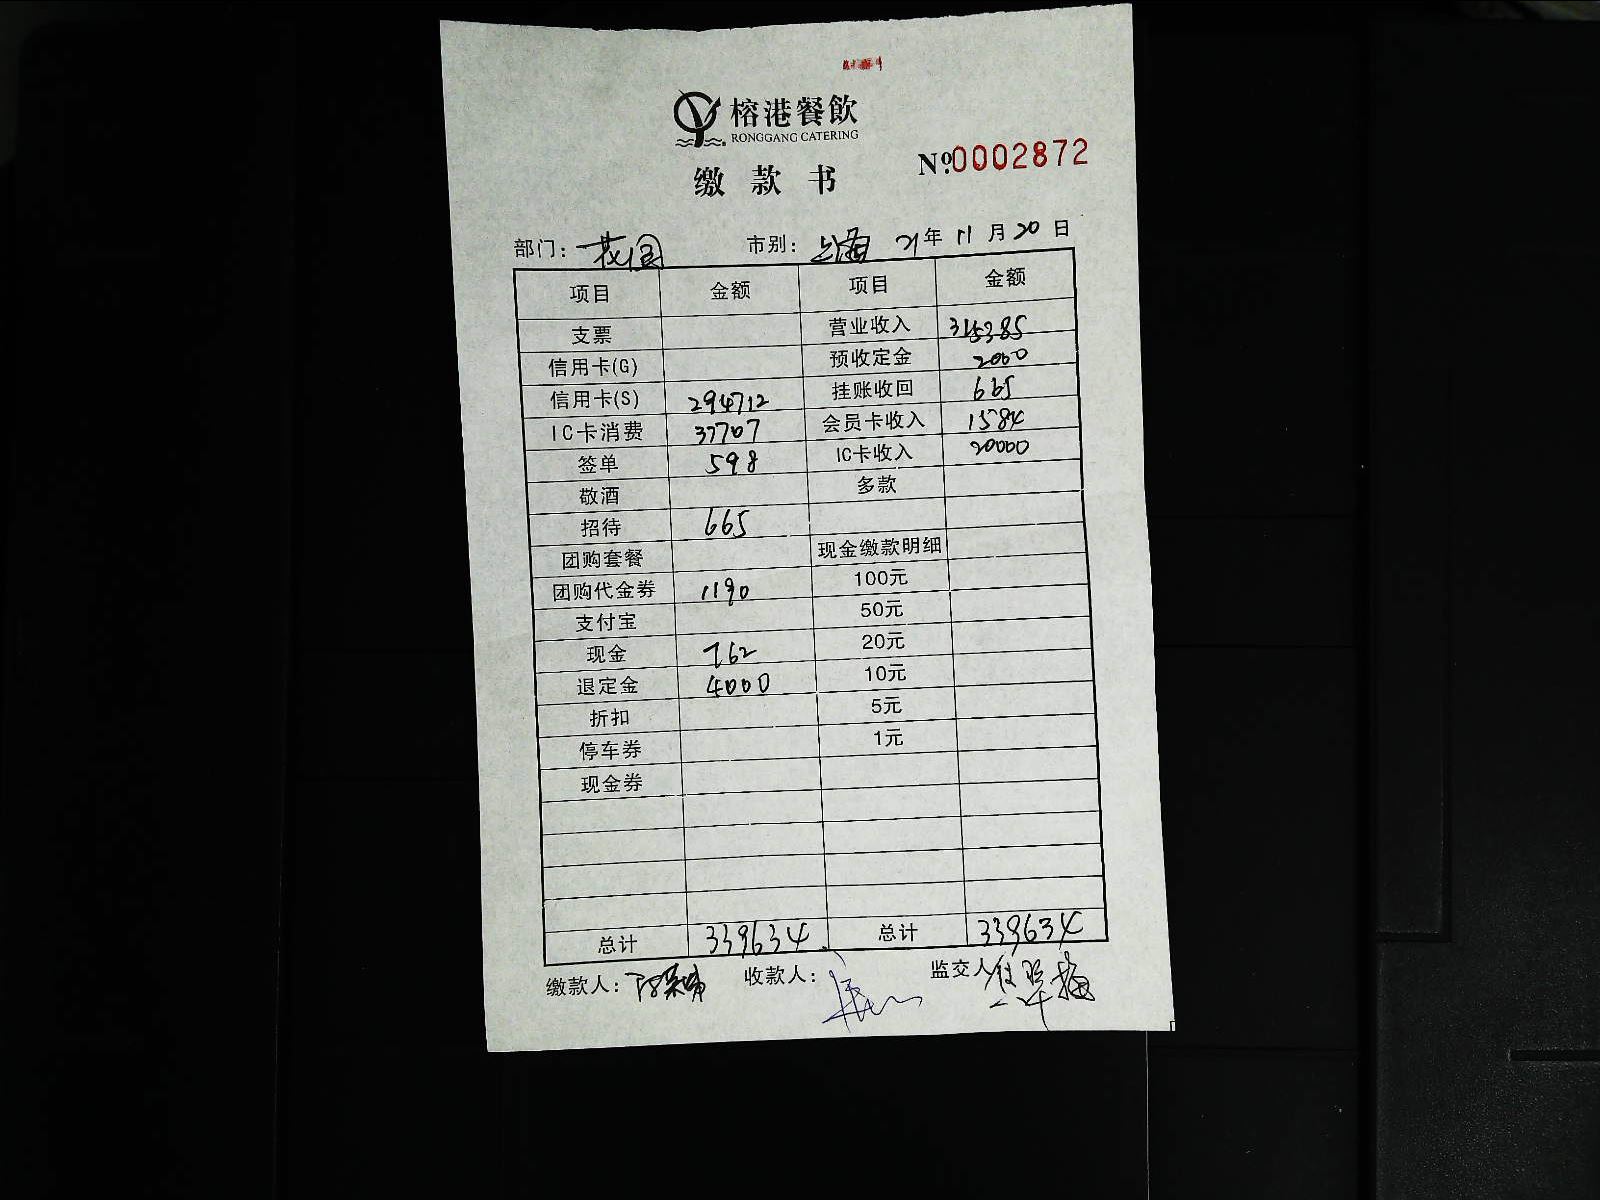 榕港餐飲
RONGGANG CATERING
缴款书 №0002872
部门: 花园 市别: 上海 21年 11月 20日
项目 金额 项目 金额
支票 营业收入 315385
信用卡(G) 预收定金 2000
信用卡(S) 294712 挂账收回 665
IC卡消费 37707 会员卡收入 1584
签单 598 IC卡收入 20000
敬酒 多款
招待 665
团购套餐 现金缴款明细
团购代金券 1190 100元
支付宝 50元
现金 762 20元
退定金 4000 10元
折扣 5元
停车券 1元
现金券
总计 339634. 总计 339634
缴款人: 收款人: 监交人